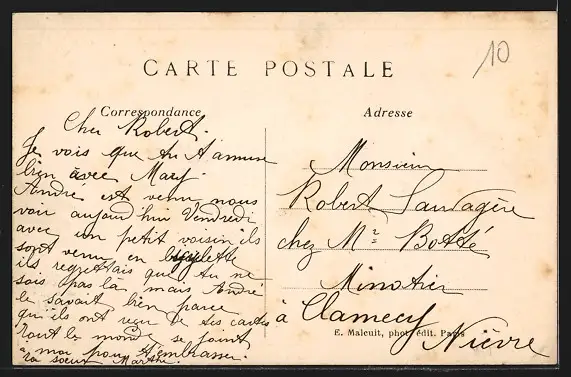 10
CARTE POSTALE
Correspondance
Adresse
Cher Robert.
Je vois que tu t'amuse
bien avec Mary.
André est venu nous
voir aujourd'hui Vendredi
avec un petit voisin ils
sont venu en bicyclette
ils regrettais que tu ne
sois pas là mais André
le savait bien parce
qu'ils ont reçu de tes cartes
Tout le monde se joint
à moi pour t'embrasser.
Ta sœur Marthe.
Monsieur
Robert Sauvagère
chez Mr Botté
Minotier
à Clamecy
Nièvre
E. Maleuit, phot. édit. Paris